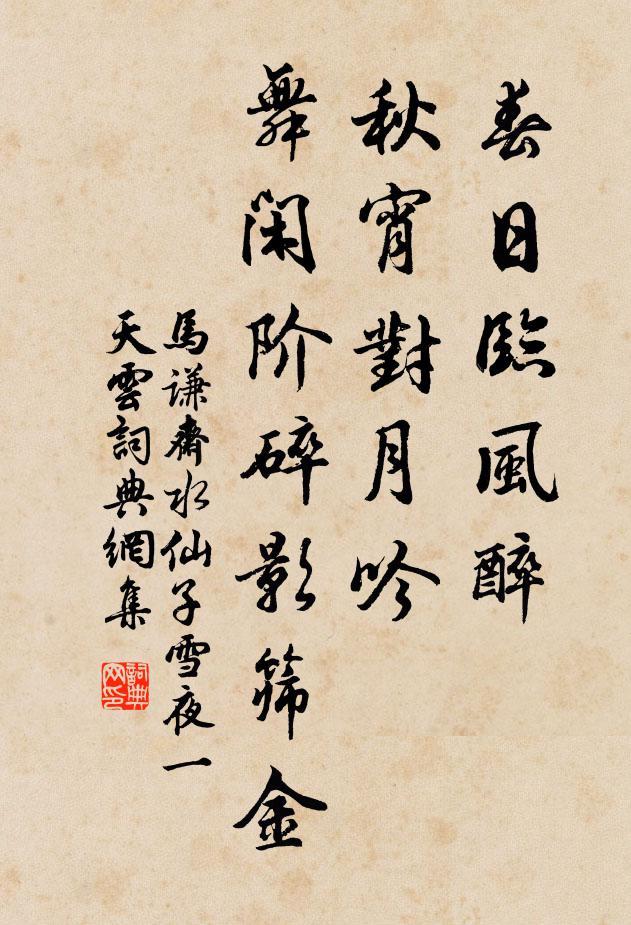 春日臨風醉
秋宵對月吟
舞閑阶碎影筛金
馬謙齋水仙子雪夜一
天雲詞典網集
詞典网印